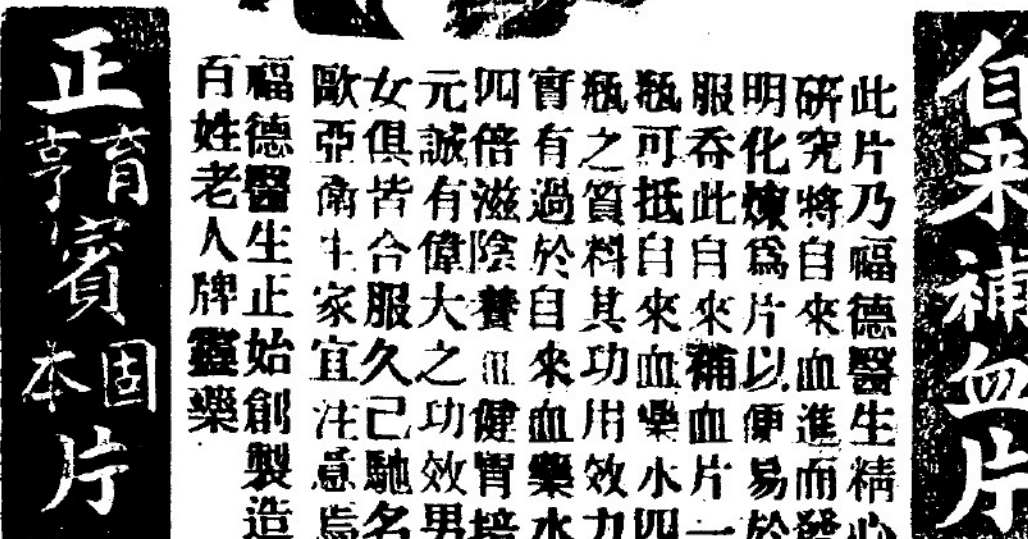 自来補血片
此片乃福德醫生精心
研究將自來血進而發
明化煉為片以便易於
服吞此自來補血片一
瓶可抵自來血藥水四
瓶之質料其功用效力
實有過於自來血藥水
四倍滋陰養血健胃培
元誠有偉大之功效男
女俱皆合服久已馳名
歐亞衛生家宜注意焉
福德醫生正始創製造
百姓老人牌靈藥
正育亨賓固本片